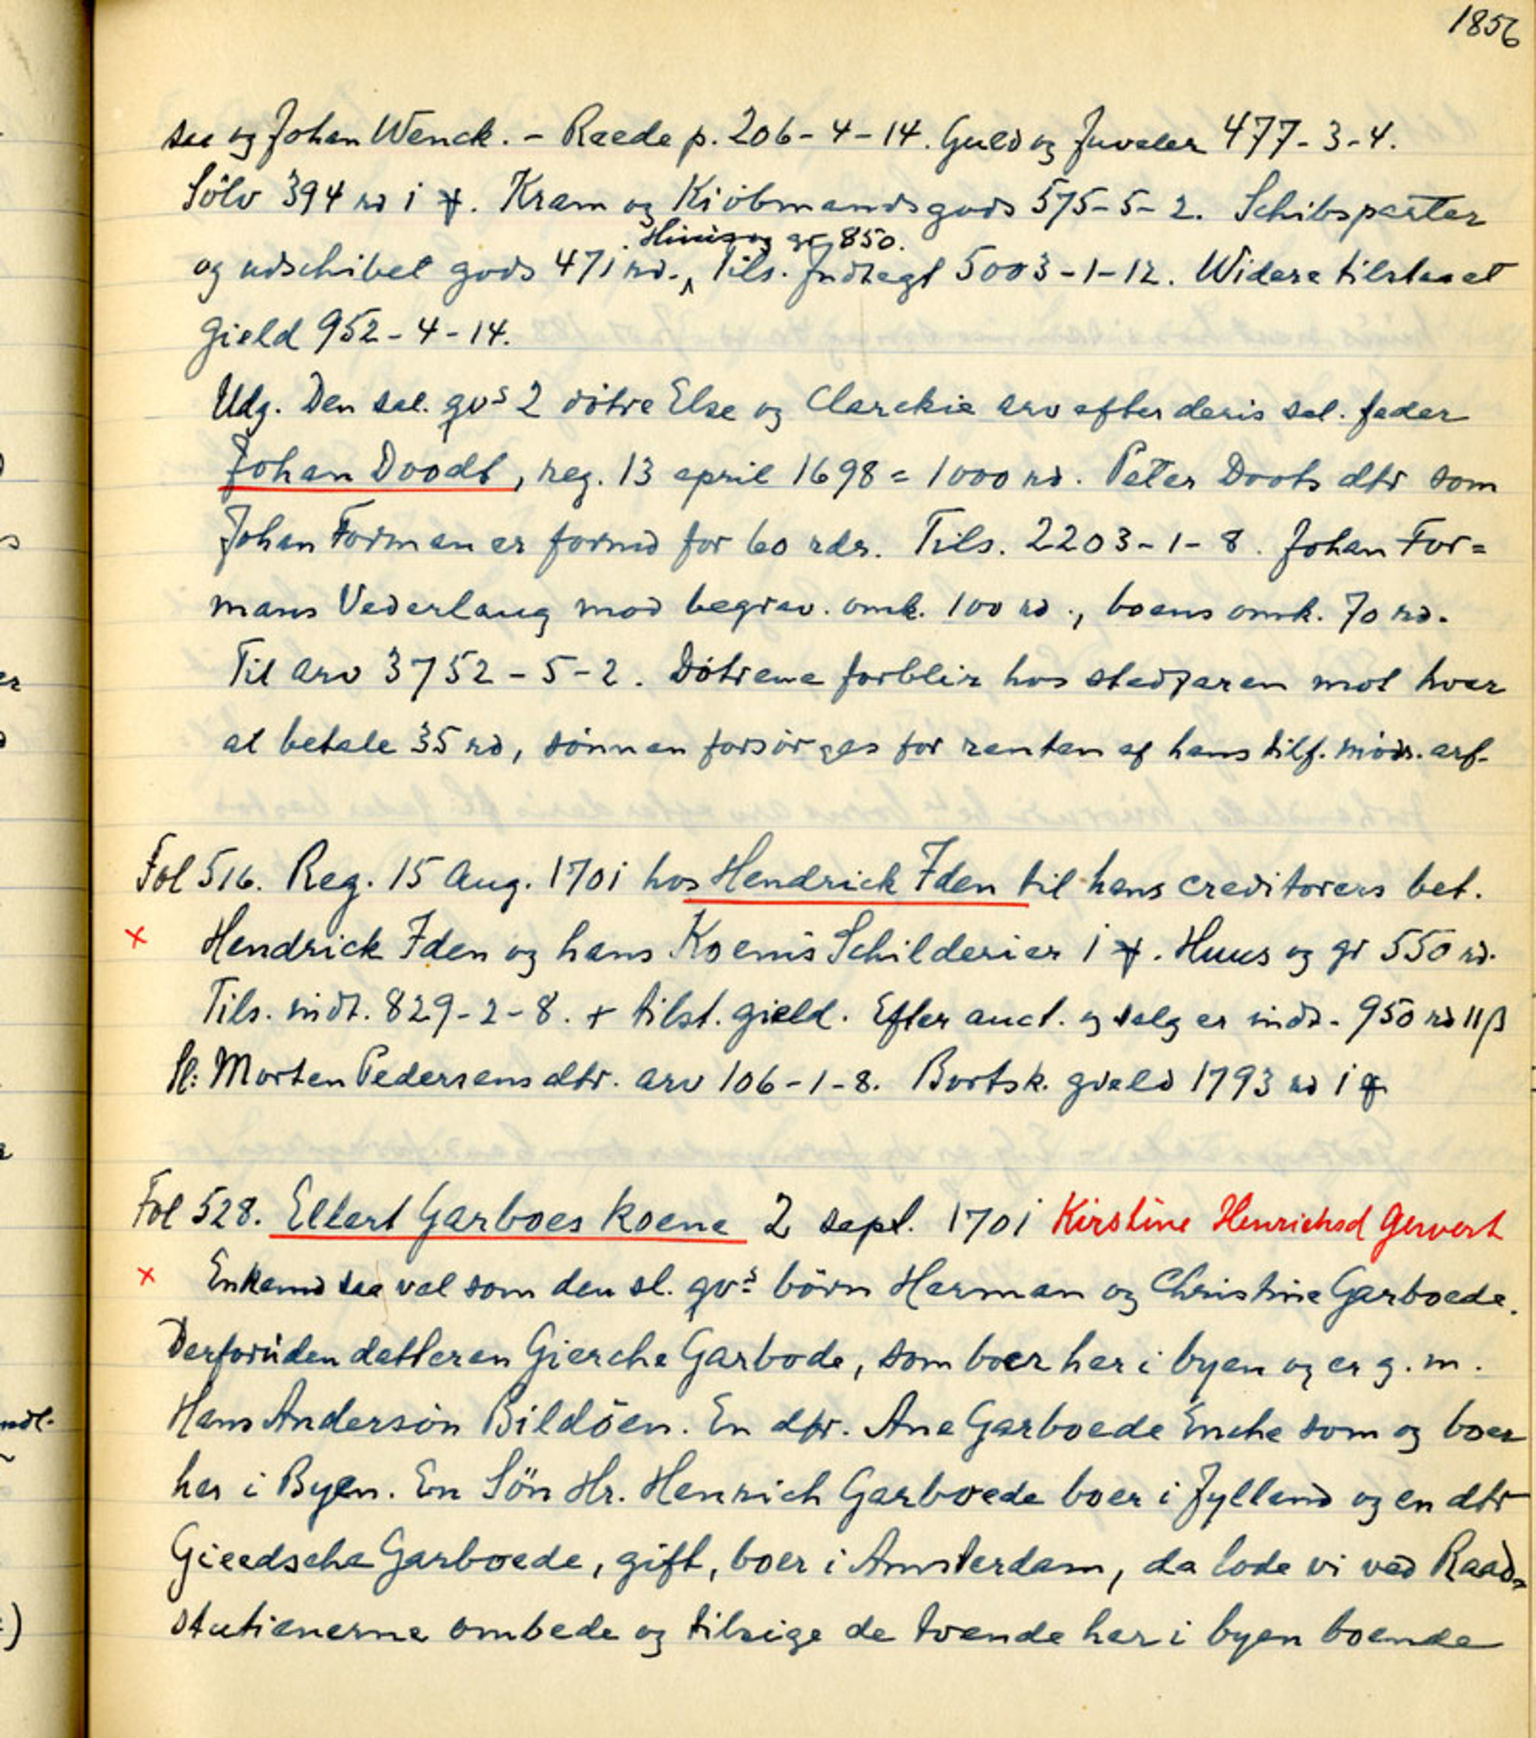 1856
saa og Johan Wenck. - Reede p. 206-4-14. Guld og Juveler 477-3-4.
Sölv 394 rd i. Kram og Kiöbmandsgods 575-5-2. Schibsparter
Huus og gr. 850.
og udschibet gods 471 rd. Tils. Indtegt 5003-1-12. Widere tilstaaet
gield 952-4-14.
Udg. Den sal. qvs 2 döttre Else og Clarckie arv efter deris sal. fader
Johan Doodt, reg. 13 april 1698 = 1000 rd. Peter Doots dtr som
Johan Forman er formd for 60 rdr. Tils. 2203-1-8. Johan For=
mans Vederlaug mod begrav. omk. 100 rd., boens omk. 70 rd.
Til arv 3752-5-2. Döttrene forblir hos stedfaren mot hver
at betale 35 rd, sönnen forsörges for renten af hans tilf. mödr. arf.
Fol 516. Reg. 15 Aug. 1701 hos Hendrick Iden til hans creditorers bet.
x Hendrick Iden og hans Koenis Schilderier i. Huus og gr 550 rd.
Tils. indt. 829-2-8. + tilst. gield. Efter auct. og salg er indt. 950 rd 11 β
Sl: Morten Pedersens dtr. arv 106-1-8. Bortsk. gield 1793 rd i
Fol 528. Ellert Garboes koene 2 sept. 1701 Kirstine Henrichsd Gervert
x Enkemd saa vel som den sl. qvs börn Herman og Christine Garboede.
Derforuden datteren Gierche Garbode, som boer her i byen og er g. m.
Hans Andersön Bildöen. En dtr. Ane Garboede Enche som og boer
her i Byen. En Sön Hr. Henrich Garboede boer i Jylland og en dtr
Gieedsche Garboede, gift, boer i Amsterdam, da lode vi ved Raad=
stutienerne ombede og tilsige de tvende her i byen boende